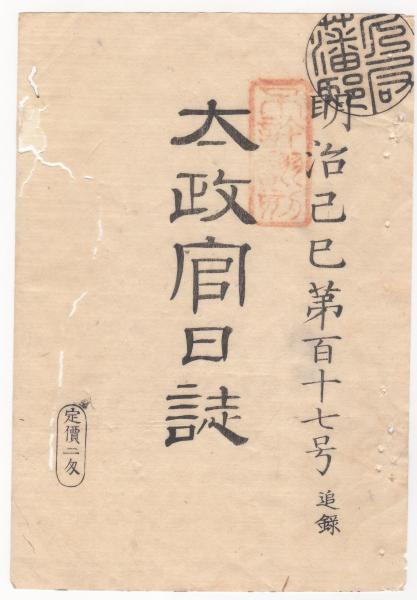 明治己巳第百十七号 追録
太政官日誌
定價二匁